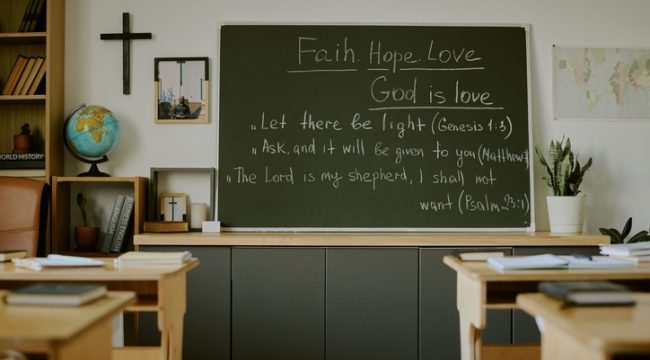 Faih. Hope. Love
God is love
„ Let there be light (Genesis 1:3)
„ Ask, and it will be given to you (Matthew
„ The Lord is my shepherd, I shall not
want (Psalm, 23:1)
WORLD HISTORY